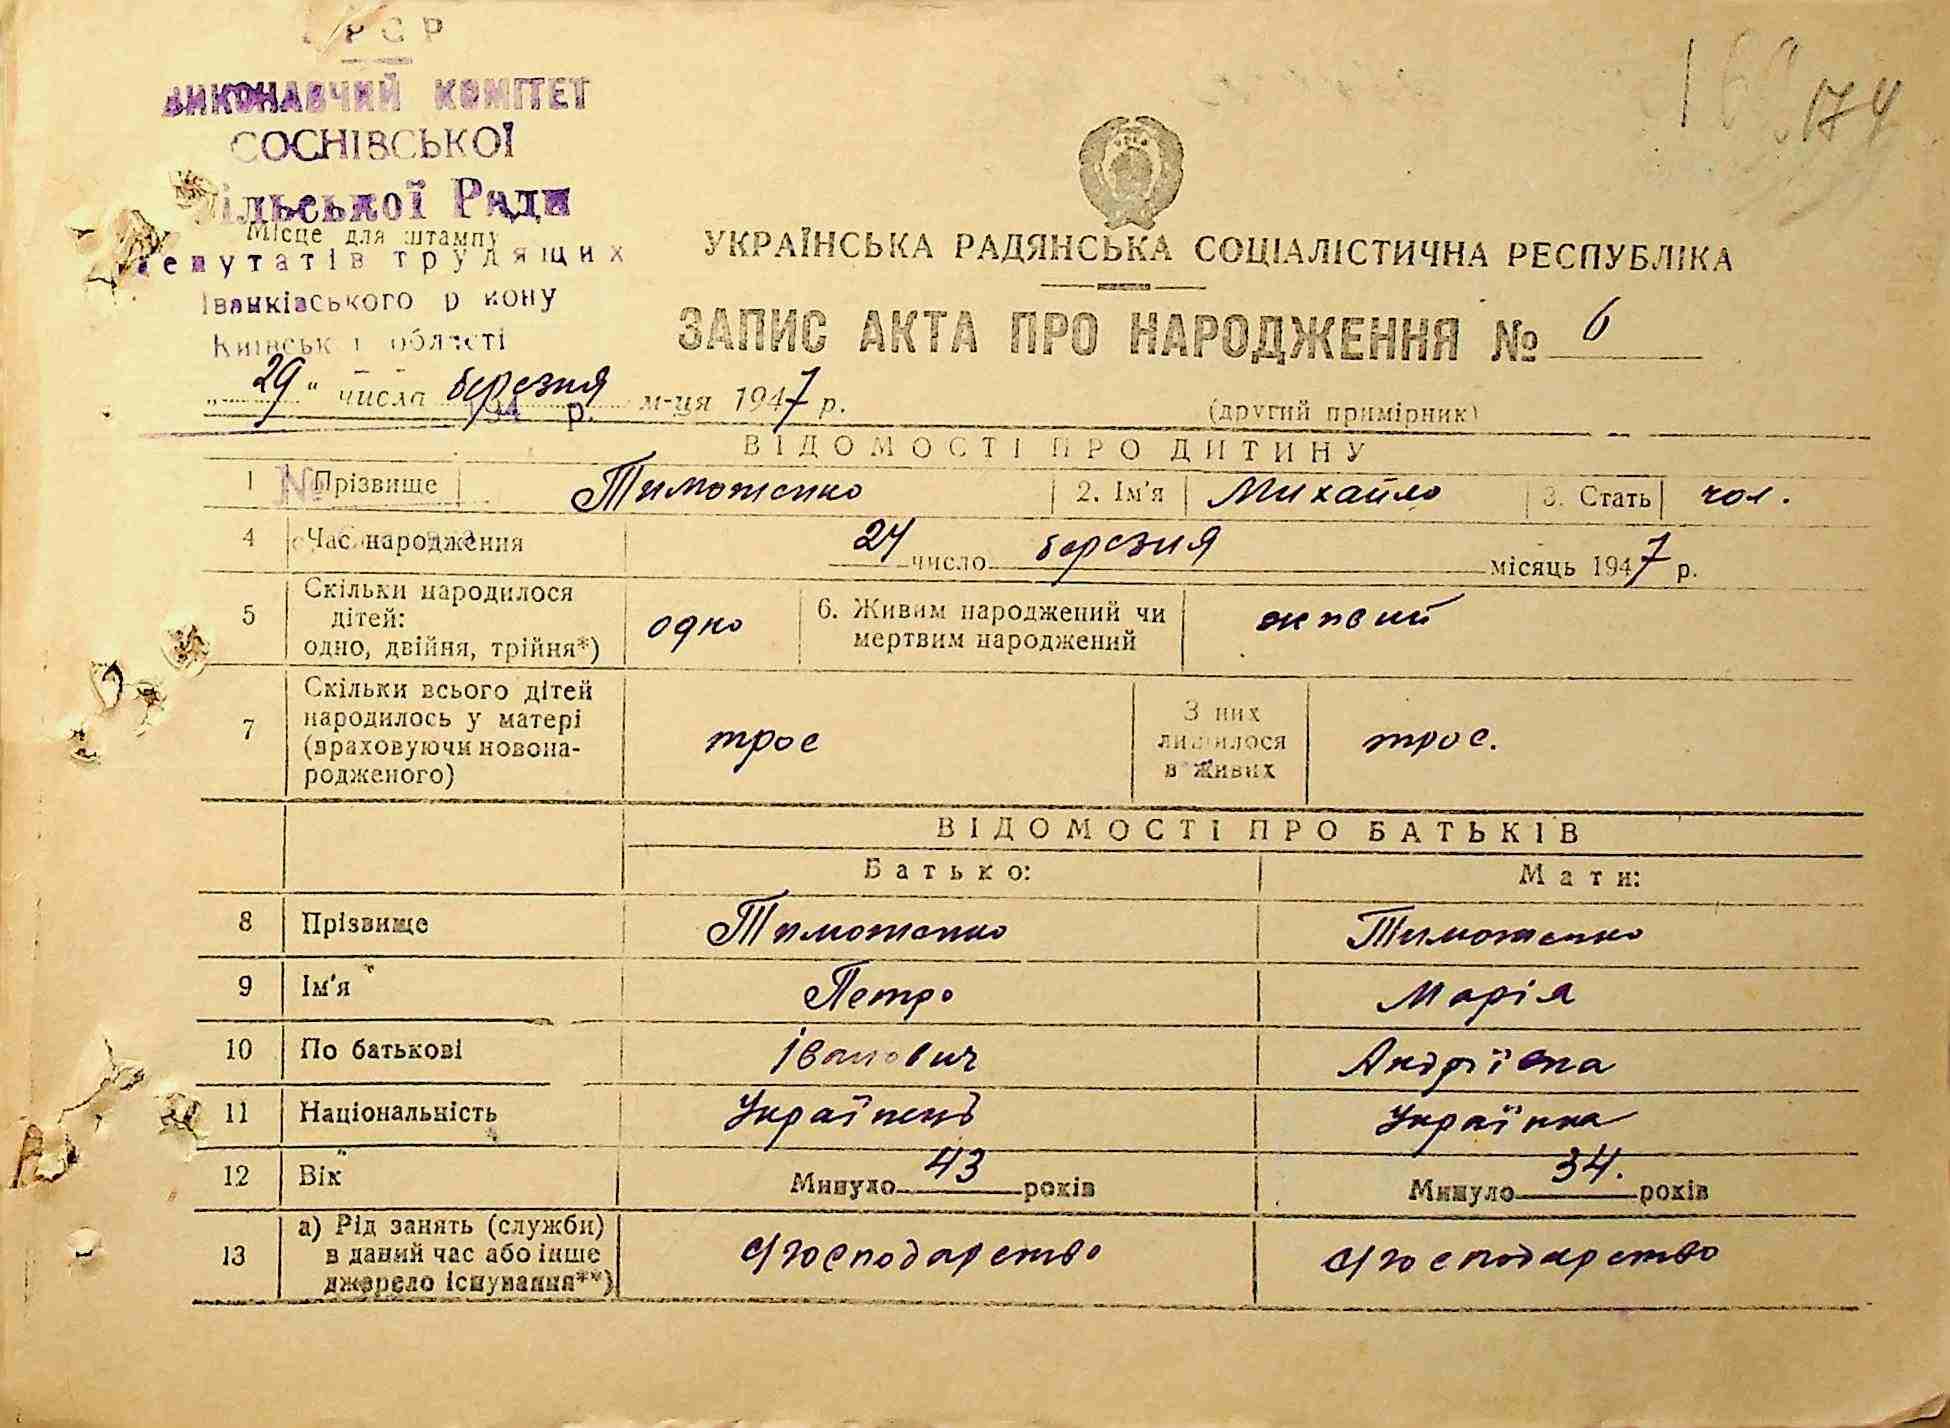 УРСР
ВИКОНАВЧИЙ КОМІТЕТ
СОСНІВСЬКОЇ
сільської Ради
Місце для штампу
депутатів трудящих
Іванківського району
Київської області
194 р.
174
УКРАЇНСЬКА РАДЯНСЬКА СОЦІАЛІСТИЧНА РЕСПУБЛІКА
ЗАПИС АКТА ПРО НАРОДЖЕННЯ № 6
„29" числа березня м-ця 1947 р.
(другий примірник)
ВІДОМОСТІ ПРО ДИТИНУ
1 Прізвище Тимошенко 2. Ім'я Михайло 3. Стать чол.
4 Час народження 24 число березня місяць 1947 р.
5 Скільки народилося дітей: одно, двійня, трійня*) одно 6. Живим народжений чи мертвим народжений живий
7 Скільки всього дітей народилось у матері (враховуючи новонародженого) троє З них лишилося в живих троє.
ВІДОМОСТІ ПРО БАТЬКІВ
Батько: Мати:
8 Прізвище Тимошенко Тимошенко
9 Ім'я Петро Марія
10 По батькові Іванович Андріївна
11 Національність Українець Українка
12 Вік Минуло 43 років Минуло 34. років
13 а) Рід занять (служби) в даний час або інше джерело існування**) с/господарство с/господарство